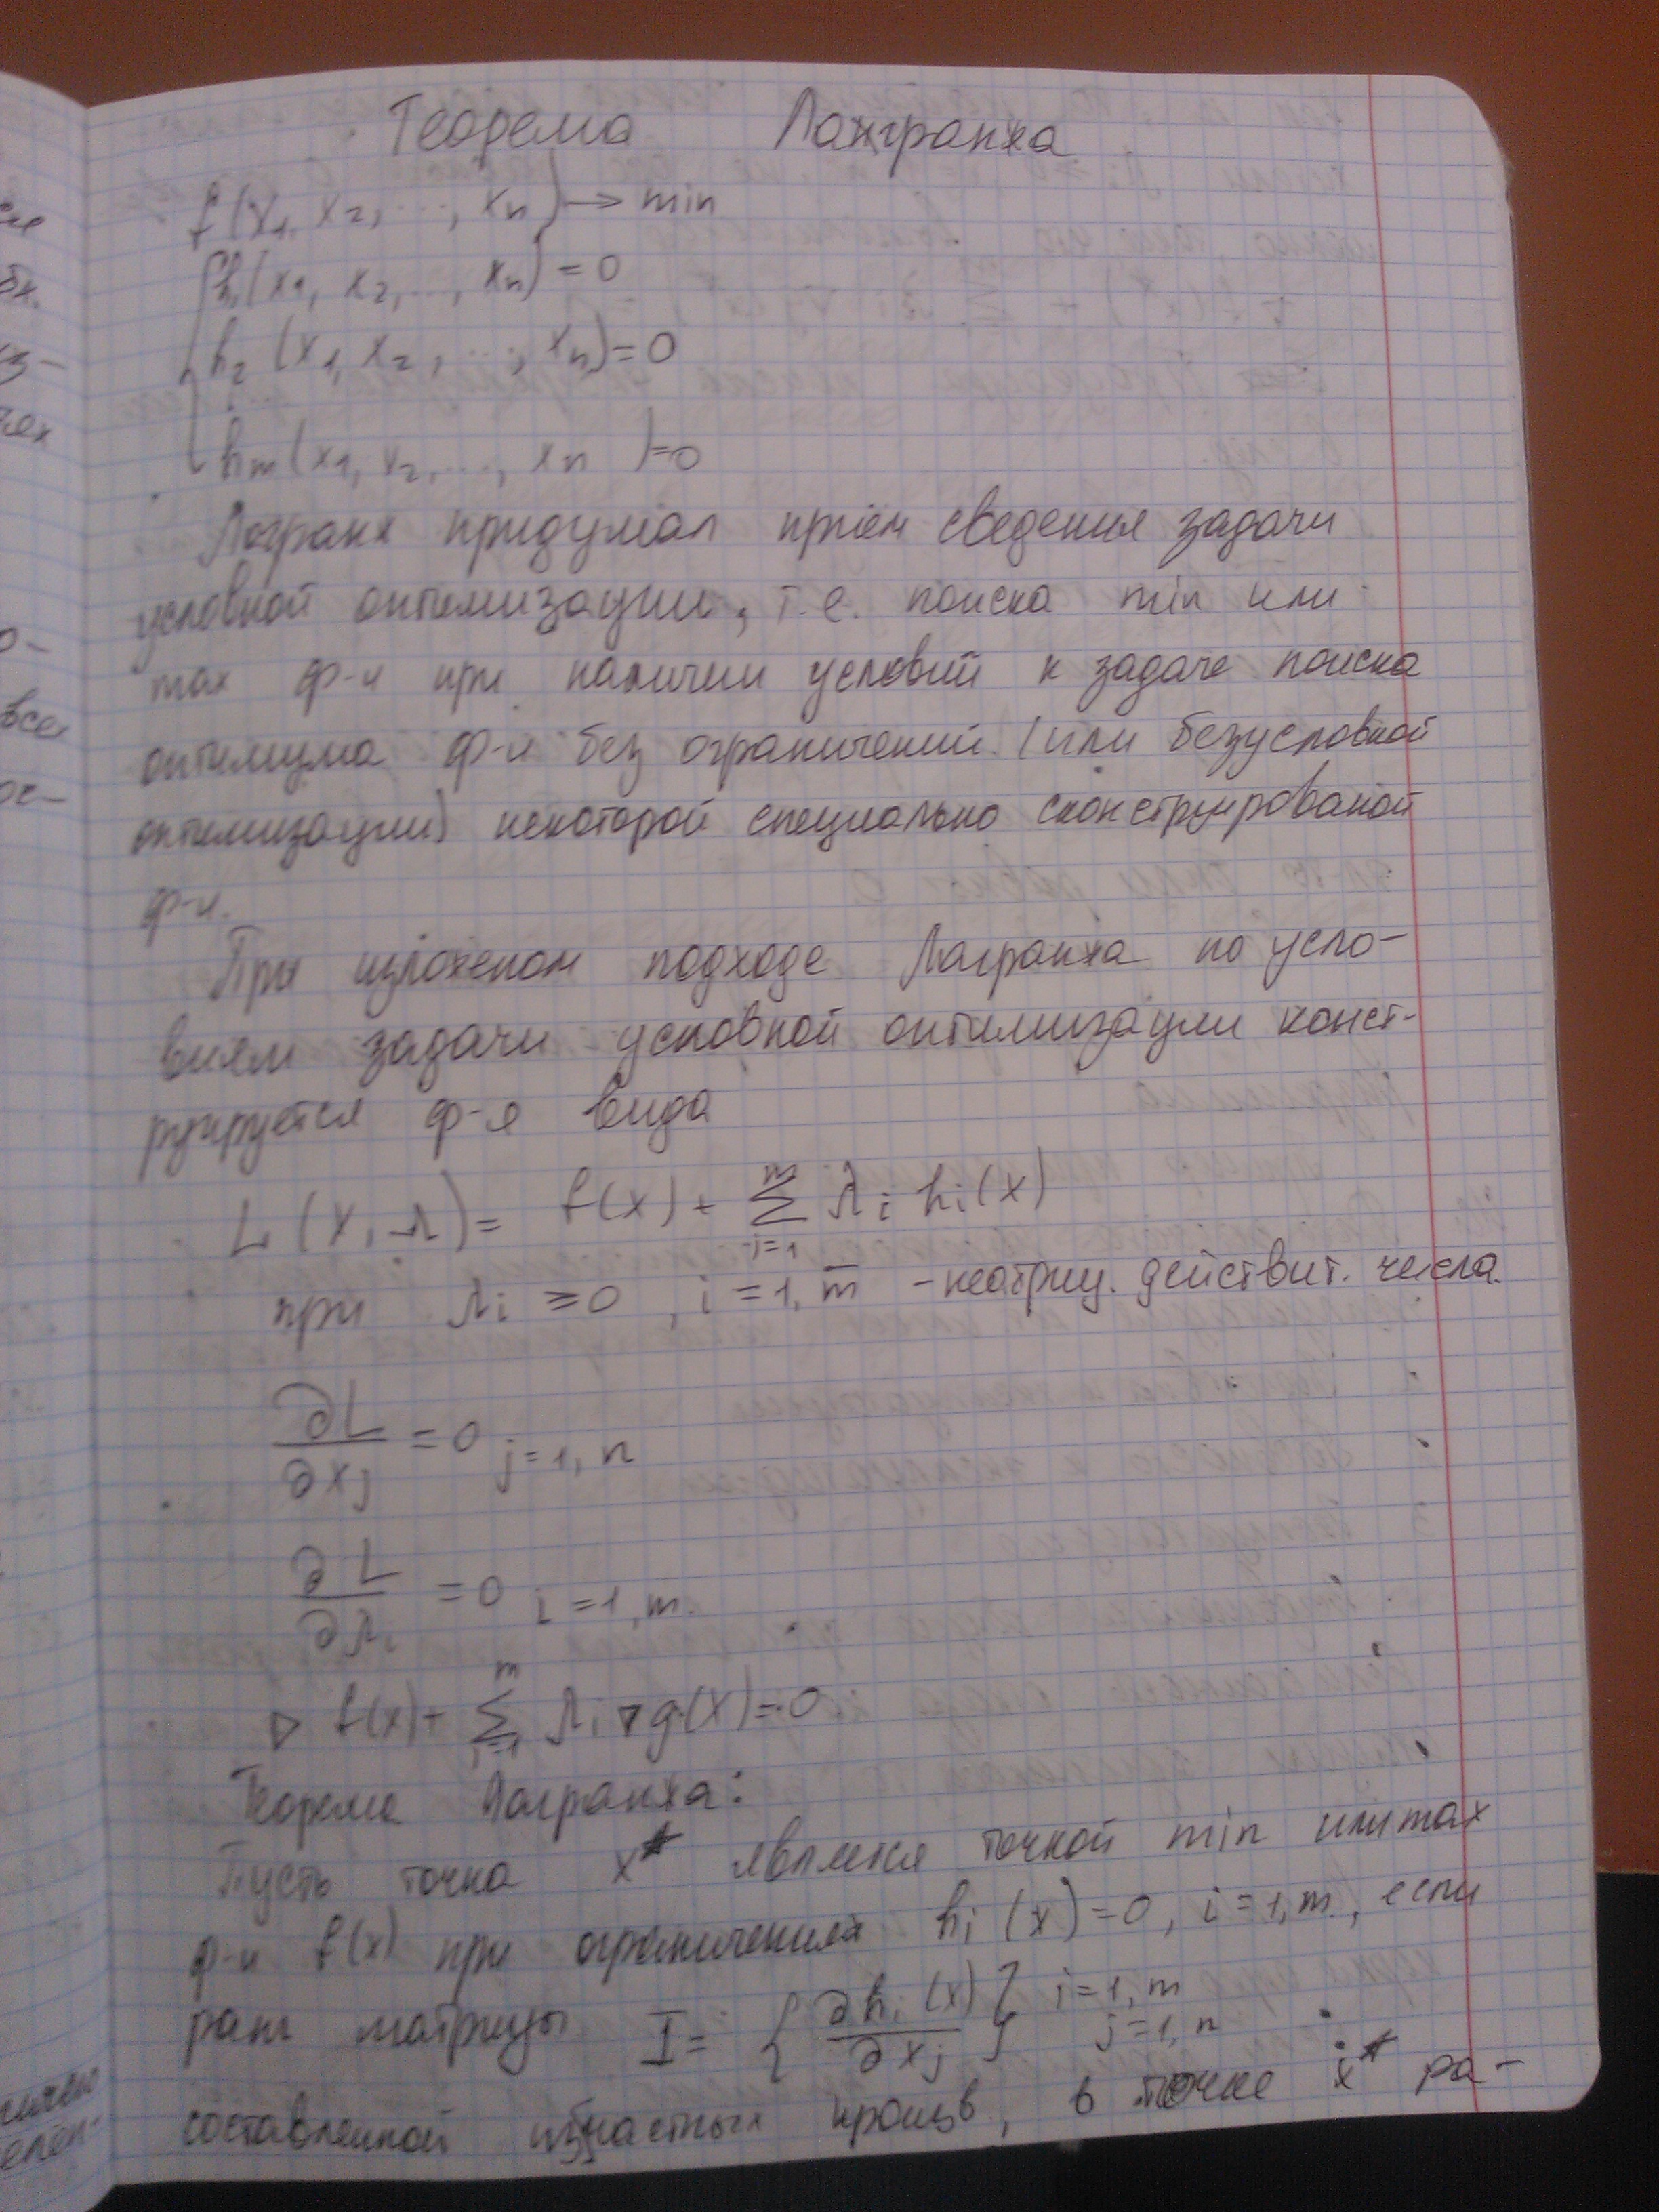 Теорема Лангранжа
f(x₁, x₂, ..., xₙ) → min
h₁(x₁, x₂, ..., xₙ) = 0
h₂(x₁, x₂, ..., xₙ) = 0
hm(x₁, x₂, ..., xn) = 0
Лагранж придумал приём сведения задачи
условной оптимизации, т.е. поиска min или
max ф-и при наличии условий к задаче поиска
оптимума ф-и без ограничений (или безусловной
оптимизации) некоторой специально сконструированой
ф-и.
При изложеном подходе Лагранжа по усло-
виям задачи условной оптимизации конст-
руируется ф-я вида
L(X, Λ) = f(x) + ∑ᵐᵢ₌₁ λi hi(x)
при λi ≥ 0, i = 1, m̅ - неотриц. действит. числа.
∂L/∂xj = 0 j = 1, n
∂L/∂λi = 0 i = 1, m.
∇ f(x) + ∑ᵐᵢ₌₁ λi ∇g(x) = 0
Теорема Лагранжа:
Пусть точка x* является точкой min или max
ф-и f(x) при ограничениях hi(x) = 0, i = 1, m, если
ранг матрицы I = {∂hi(x)/∂xj} i = 1, m j = 1, n
составленной из частных произв, в точке x* ра-
все